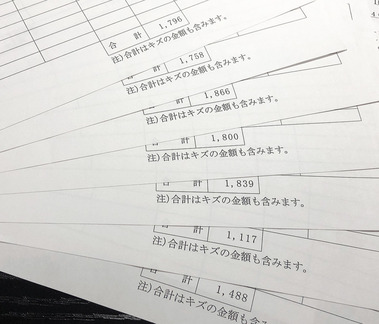 合 計 1,796
注)合計はキズの金額も含みます。
計 1,758
注)合計はキズの金額も含みます。
計 1,866
注)合計はキズの金額も含みます。
計 1,800
注)合計はキズの金額も含みます。
計 1,839
注)合計はキズの金額も含みます。
計 1,117
注)合計はキズの金額も含みます。
計 1,488
注)合計はキズの金額も含みます。